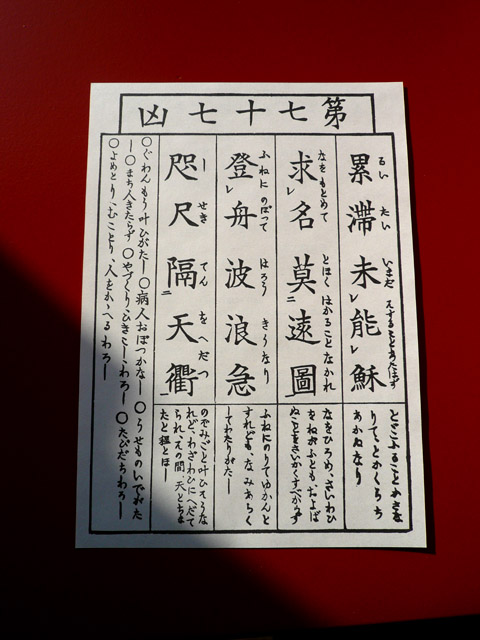 第七十七凶
累滞未能穌
るい たい いまだ よすることあたはず
求名莫遠圖
なをもとめて とほくはかることなかれ
登舟波浪急
ふねにのぼって はろうきうなり
咫尺隔天衢
し せき てんをへだつ
とどこふることかさな
りて、とかくらち
あかぬなり
なをひろめ、さいわひ
をねがふともおよば
ぬことをさいかくすべからず
ふねにのりてゆかんと
すれども、なみあらく
してわたりがたし
のぞみごと叶ひさうな
れど、わざわひにへだて
られ、その間、天とちほ
○ぐわんもう叶ひがたし○病人おぼつかなし○うせものいでがた
し○まち人きたらず○やづくり、ひきこし、わろし○たびだちわろし
○よめとり、むことり、人をかゝへるわろし